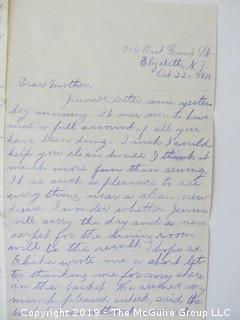 316 West Grand St.
Elizabeth, N.J.
Oct 22-
Dear Mother.
Jennie's letter came yester-
day morning. It was nice to have
such a full account of all you
have been doing. I wish I could
help you clean house. I think it
much more fun than sewing.
It is such a pleasure to see
everything wear a clean new
face. I wonder whether Jennie
will carry the day and a new
carpet for the dining room
will be the result. I hope so.
Elisha wrote me a short let-
ter thanking me for my share
in the basket. He seemed very
much pleased, indeed, said the
Copyright 2019 - The McGuire Group